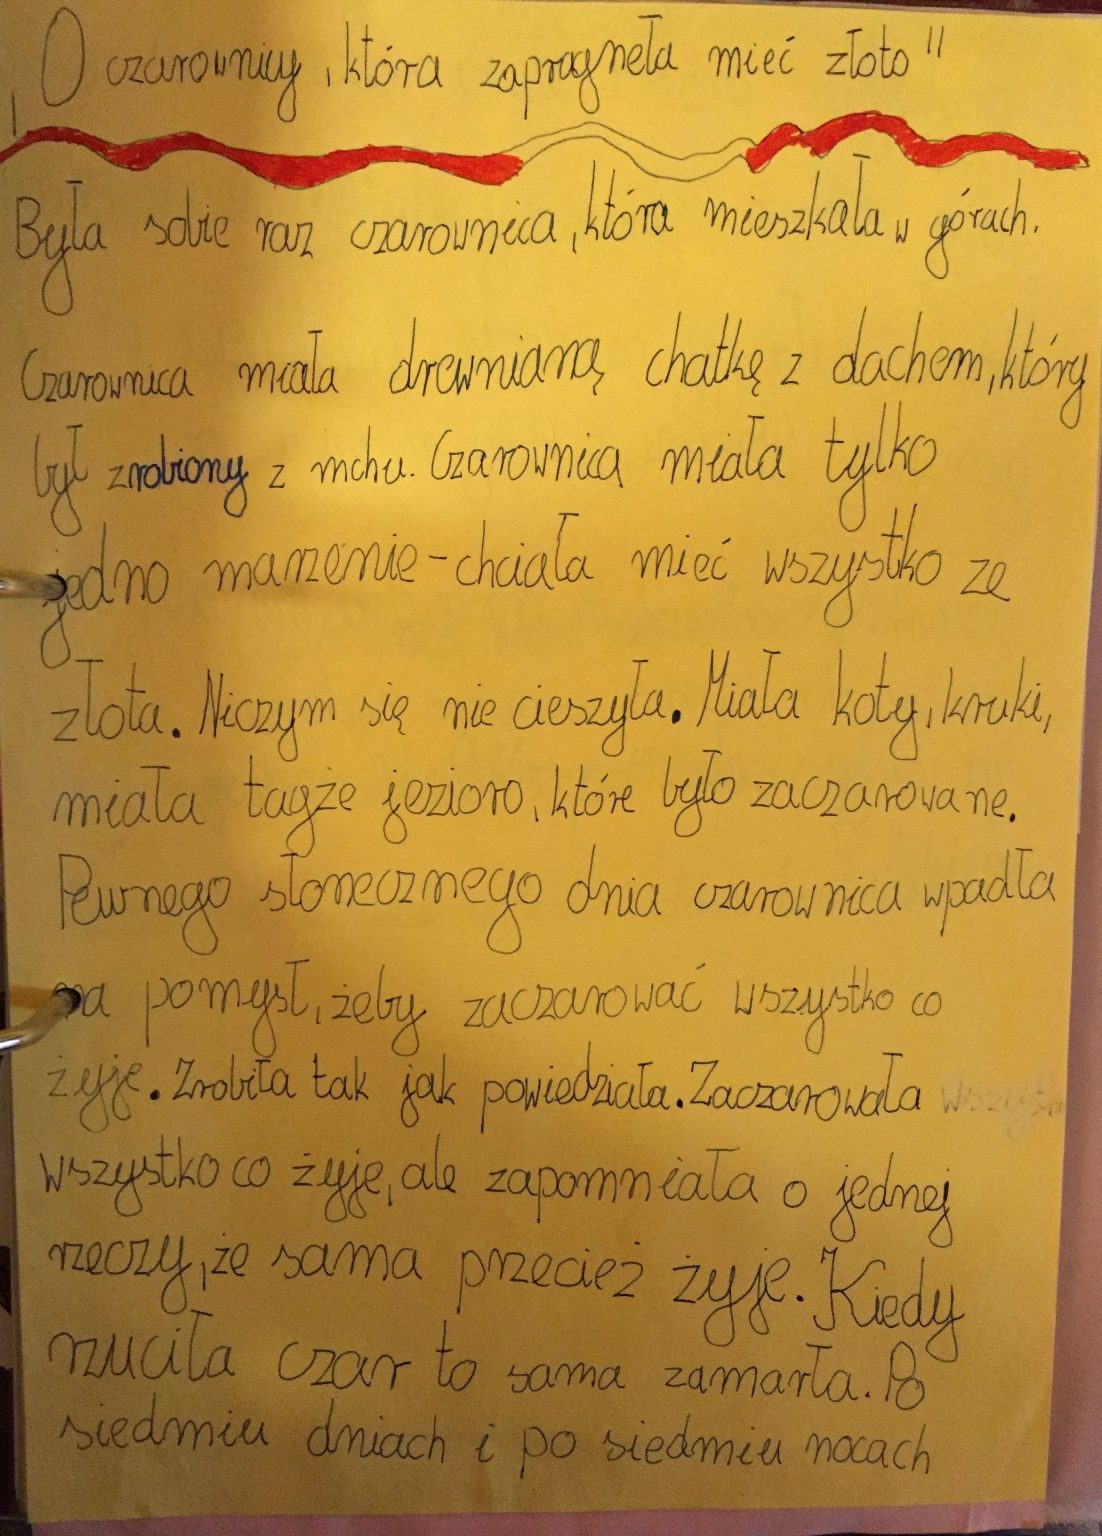 „O czarownicy, która zapragneła mieć złoto"
Była sobie raz czarownica, która mieszkała w górach.
Czarownica miała drewnianą chatkę z dachem, który
był zrobiony z mchu. Czarownica miała tylko
jedno marzenie - chciała mieć wszystko ze
złota. Niczym się nie cieszyła. Miała koty, kruki,
miała tagże jezioro, które było zaczarowane.
Pewnego słonecznego dnia czarownica wpadła
na pomysł, żeby zaczarować wszystko co
żyje. Zrobiła tak jak powiedziała. Zaczarowała
wszystko co żyje, ale zapomniała o jednej
rzeczy, że sama przecież żyje. Kiedy
rzuciła czar to sama zamarła. Po
siedmiu dniach i po siedmiu nocach